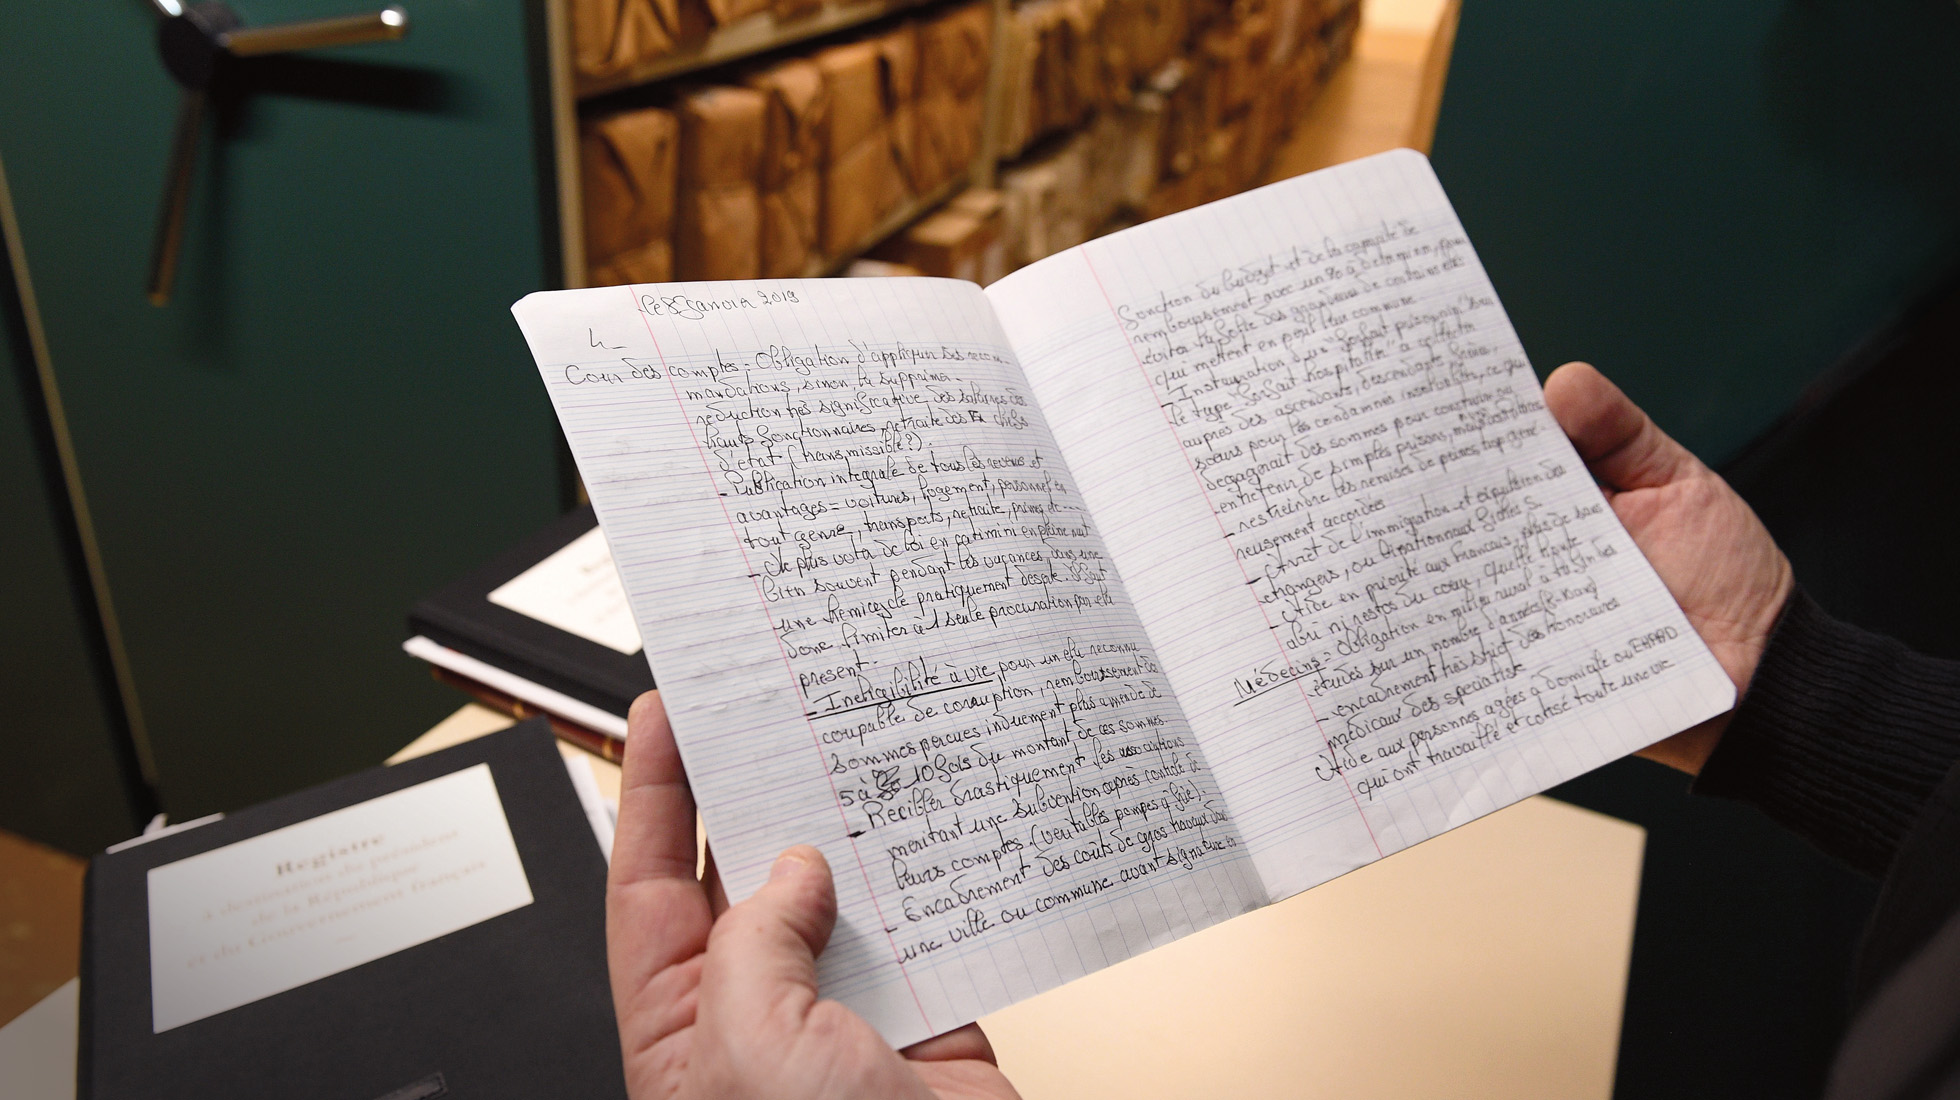 le 8 Janvier 2019
4_
Cour des comptes = Obligation d'appliquer ses recom-
mandations, sinon, la supprimer.
réduction très significative des salaires des
hauts fonctionnaires, retraite des Ex chefs
d'état (transmissible?).
- Publication intégrale de tous les revenus et
avantages = voitures, logement, personnel en
tout genre, transports, retraite, primes etc...
- De plus vote de loi en catimini en pleine nuit
bien souvent pendant les vacances, dans une
une hemicycle pratiquement desert. Il faut
donc limiter à 1 seule procuration par elu
present.
- Ineligibilité à vie, pour un elu reconnu
coupable de corruption, remboursement des
sommes percues induement plus amende de
5 à 10 fois du montant de ces sommes.
- Recibler drastiquement les associations
meritant une subvention après controle de
leurs comptes. (veritables pompes à fric).
- Encadrement des coûts de gros travaux dans
une ville ou commune avant signature
fonction du budget et de la capacité de
remboursement avec un % à determiner, pour
éviter la folie des grandeurs de certains elus
qui mettent en péril leur commune.
- Instauration d'un "forfait prison
le type "forfait hospitalier" à
auprès des ascendants, descendants, frères,
sœurs pour les condamnes insolvables, ce qui
degagnait des sommes pour construire ou
entretenir de simples prisons,
- restreindre les remises de peines, trop géné-
reusement accordées
- Arret de l'immigration et expulsion des
etrangers, ou binationnaux fichés S.
- Aide en priorité aux francais, plus de sans
abri ni restos du cœur, quelle honte
Médecins = Obligation en milieu rural à la fin des
études sur un nombre d'années
- encadrement très strict des honoraires
médicaux des specialiste
Aide aux personnes agées à domicile ou EHPAD
qui ont travaillé et cotisé toute une vie
Registre
à destination du président
de la République
et du Gouvernement français